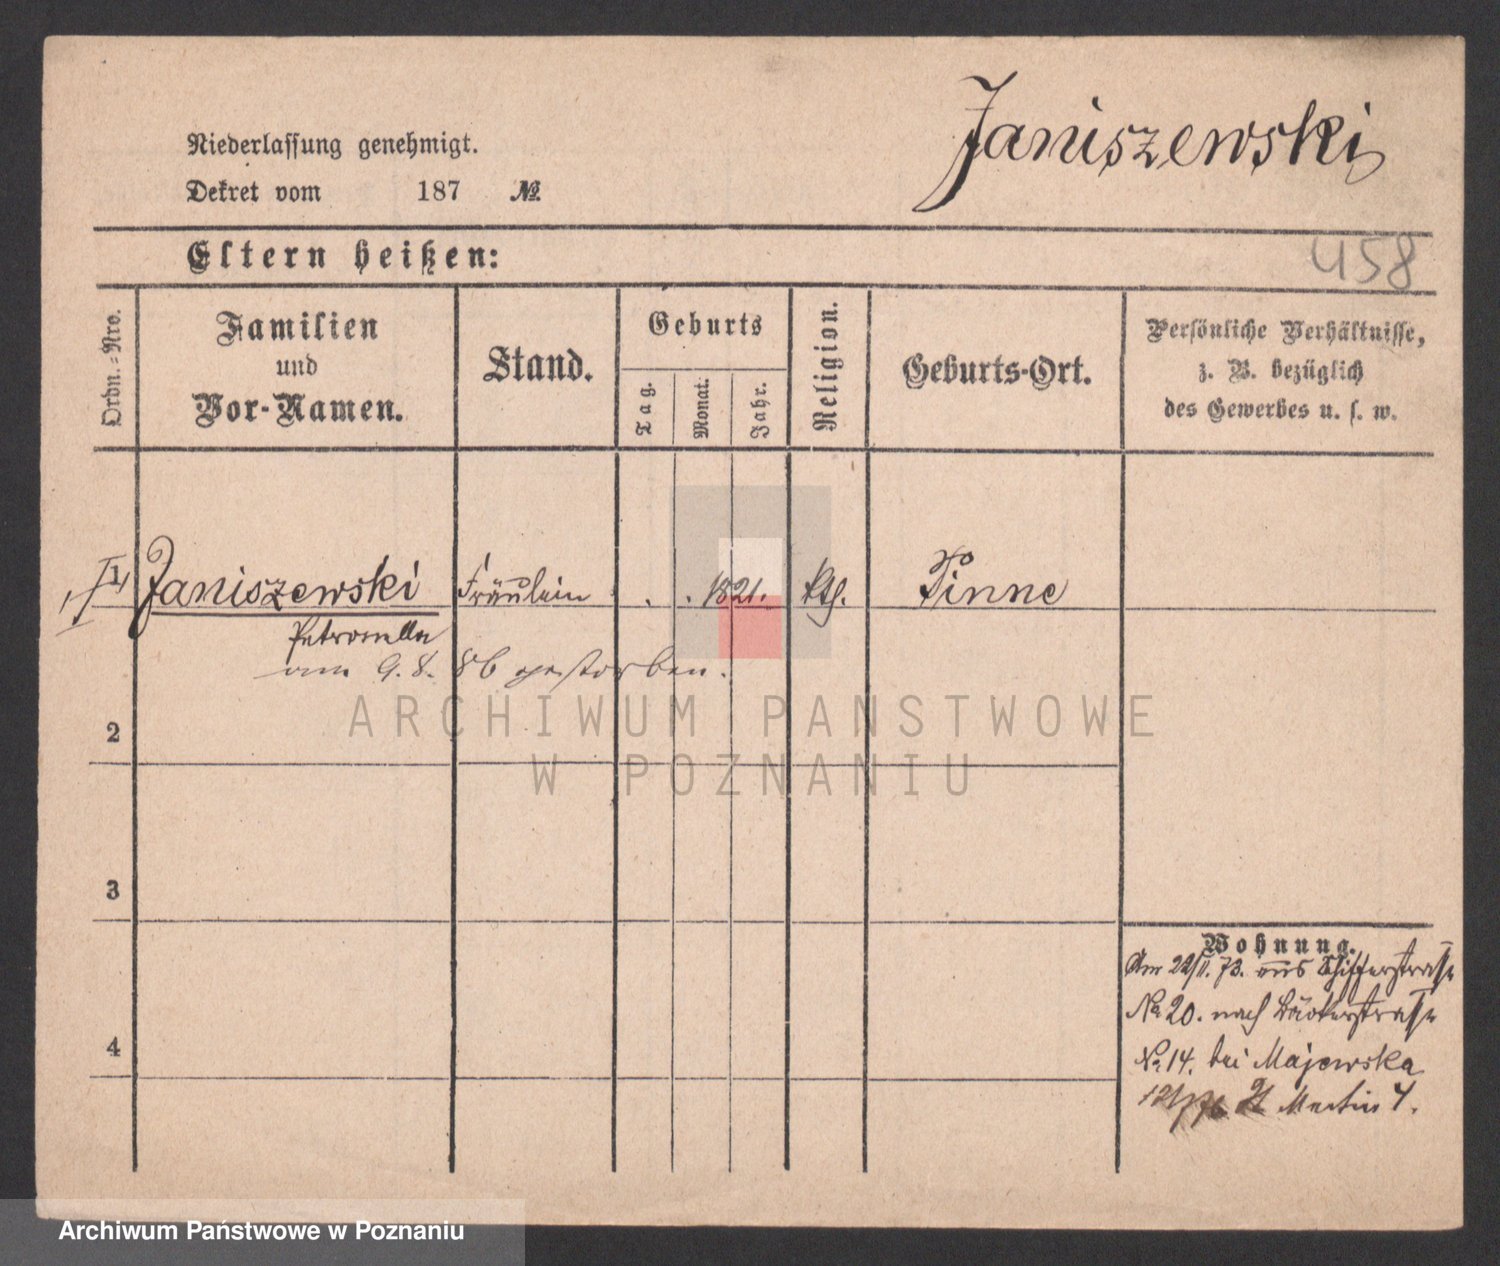 Janiszewski
Niederlassung genehmigt.
Dekret vom 187 №.
Eltern heißen:
458
Ordn.-Nro.
Familien
und
Vor-Namen.
Stand.
Geburts
Tag.
Monat.
Jahr.
Religion.
Geburts-Ort.
Persönliche Verhältnisse,
z. B. bezüglich
des Gewerbes u. s. w.
1 Janiszewski Fräulein . . 1821. kth. Pinne
Petronella
am 9. 8. 86 gestorben.
2
3
4
Wohnung.
Am 22/11. 73. aus Schifferstraße
No 20. nach Bäckerstraße
No. 14. bei Majewska
St Martin 4.
ARCHIWUM PANSTWOWE
W POZNANIU
Archiwum Państwowe w Poznaniu